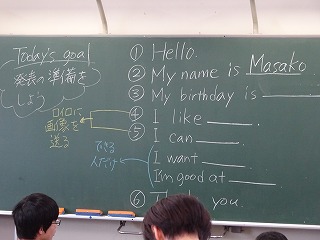 Today's goal
発表の準備を
しよう
ロイロに
画像を
送る
できる
人だけ
① Hello.
② My name is Masako
③ My birthday is
④ I like
⑤ I can
I want
I'm good at
⑥ you.